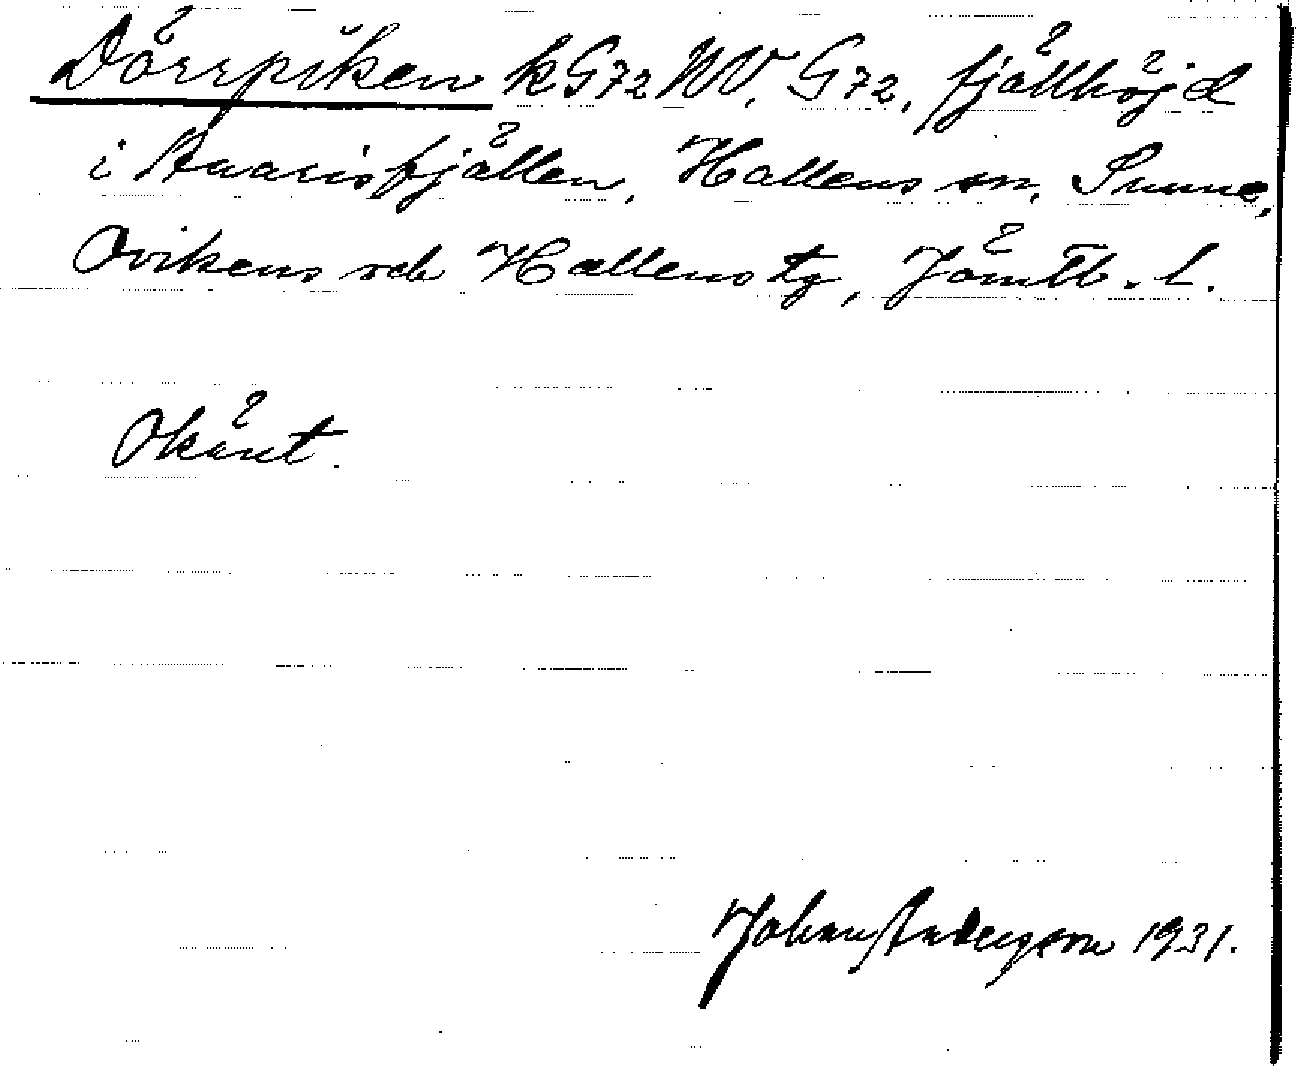 Dörrpiken k G72 NV. G72, fjällhöjd
i Anarisfjällen, Hallens sn, Sunne,
Ovikens och Hallens tg, Jämtl. l.
Okänt.
Johan Anderson 1931.